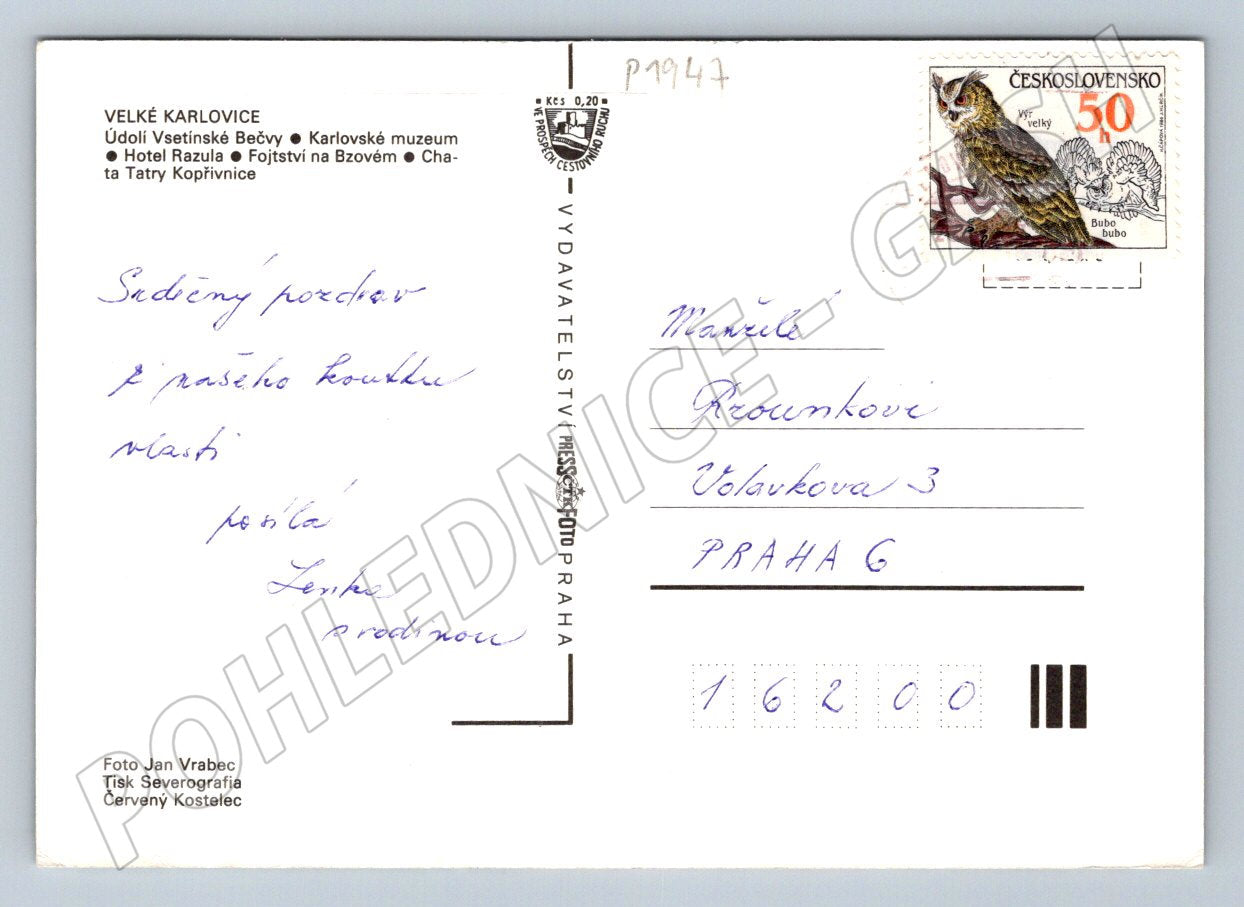 P1947
VELKÉ KARLOVICE
Údolí Vsetínské Bečvy ● Karlovské muzeum
● Hotel Razula ● Fojtství na Bzovém ● Cha-
ta Tatry Kopřivnice
Kčs 0,20
VE PROSPĚCH CESTOVNÍHO RUCHU
ČESKOSLOVENSKO
50
h
Výr
velký
Bubo
bubo
Srdečný pozdrav
z našeho koutku
vlasti
posílá
Lenka
s rodinou
VYDAVATELSTVÍ PRESSFOTO PRAHA
ČTK
Manželé
Volavkova 3
PRAHA 6
16200
Foto Jan Vrabec
Tisk Severografia
Červený Kostelec
POHLEDNICE - GASH